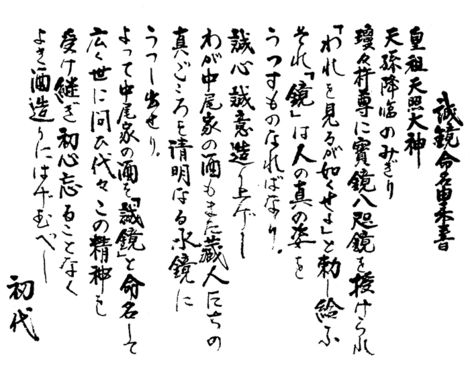 誠鏡命名由来書
皇祖天照大神
天孫降臨のみぎり
瓊々杵尊に寳鏡八咫鏡を授けられ
「われを見るが如くせよ」と勅し給ふ
それ「鏡」は人の真の姿を
うつすものなればなり。
誠心誠意造り上げし
わが中尾家の酒もまた蔵人たちの
真ごころを清明なる水鏡に
うつし出せり。
よって中尾家の酒を「誠鏡」と命名して
広く世に問ひ代々この精神を
受け継ぎ初心忘ることなく
よき酒造りにはげむべし
初代